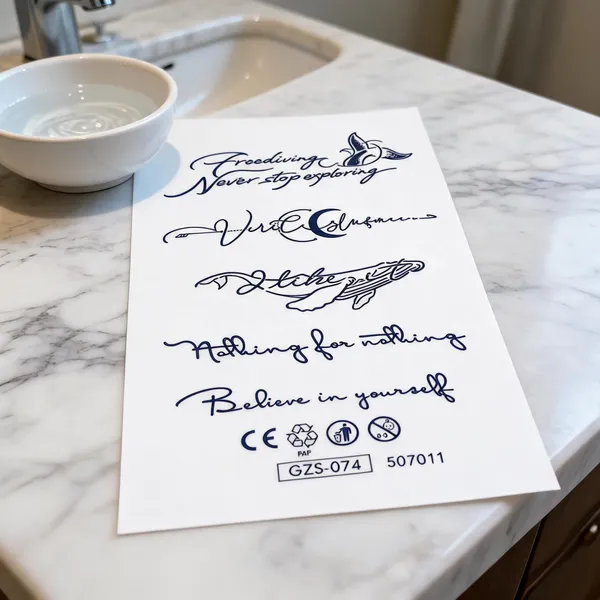 Freediving
Never stop exploring
I like
Nothing for nothing
Believe in yourself
CE
PAP
GZS-074
507011